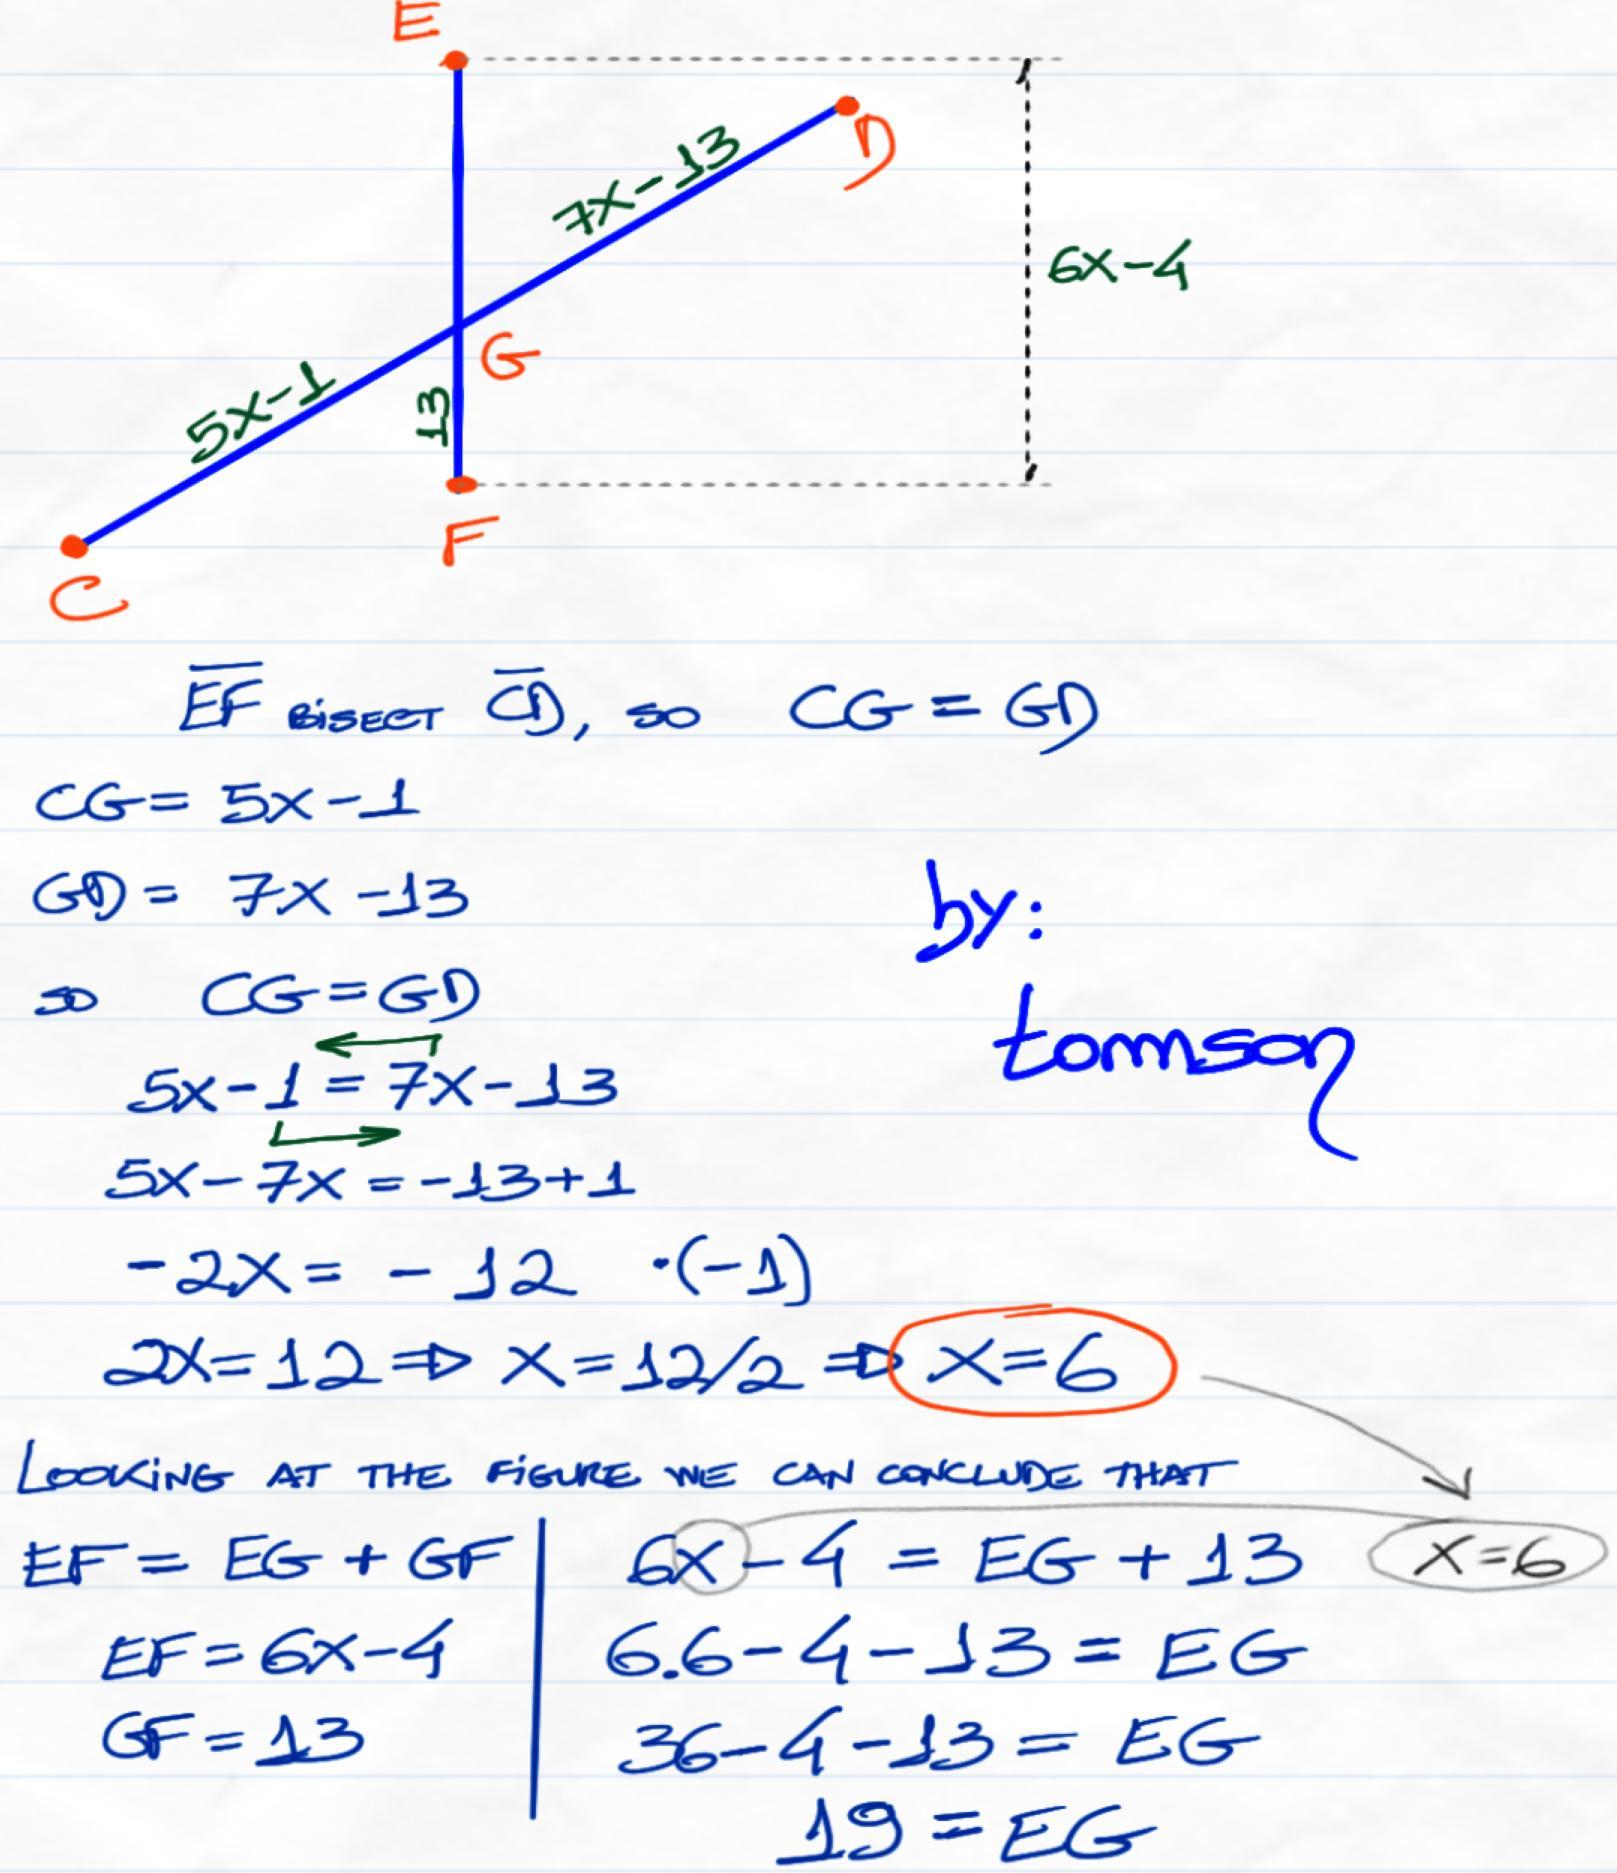 E
D
7x-13
6x-4
G
5x-1
13
F
C
EF BISECT CD, so CG = GD
CG = 5x-1
GD = 7x-13
so CG = GD
5x-1 = 7x-13
5x-7x = -13+1
-2x = -12 ·(-1)
2x=12 ⇒ x=12/2 ⇒ x=6
by:
tomnson
LOOKING AT THE FIGURE WE CAN CONCLUDE THAT
EF = EG + GF
EF = 6x-4
GF = 13
6x-4 = EG + 13
x=6
6.6-4-13 = EG
36-4-13 = EG
19 = EG